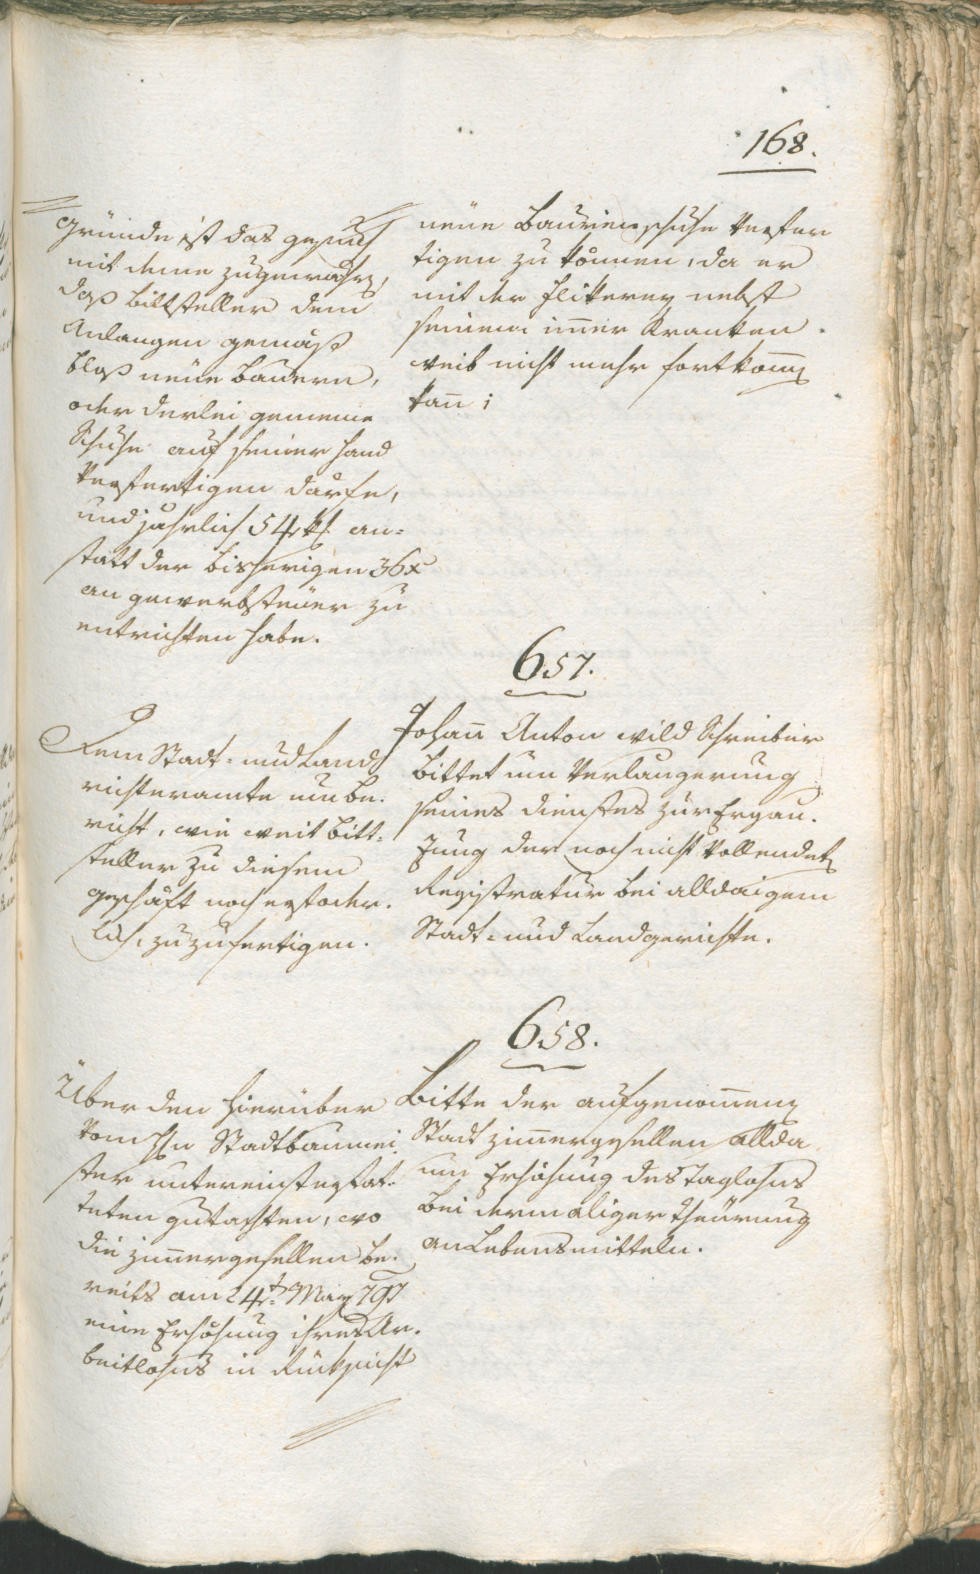 168.
Gründe ist das gesuch
mit deme zugewährē,
daß Bittsteller dem
Anlangen gemäß
bloß neüe Bauern,
oder derlei gemeine
Schuhe auf seiner Hand
verfertigen därfe,
und jährlich 54 xr. an=
statt der bisherigen 36 x
an gewerbsteüer zu
entrichten habe.
neüe Bauernschuhe verfer
tigen zu können, da er
mit der Flikerey nebst
seinem im̄er Kranken
weib nicht mehr fortkom̄ē
kan̄;
657.
Dem Stadt= und Land
richteramte um be=
richt, wie weit Bitt=
steller zu diesem
geschäft noch erfoder=
lich, zuzufertigen.
Johan̄ Anton wild Schreiber
bittet um Verlängerung
seines dienstes zur Ergän=
zung der noch nicht vollendetē
Registratur bei alldaigem
Stadt= und Landgerichte.
658.
Über den hierüber
vom Hn Stadtbaumei=
ster untereinst erstat=
teten gutachten, wo
die zim̄ergesellen be=
reits am 24t. May 797
eine Erhöhung ihres Ar=
beitlohns in Rüksicht
Bitte der aufgenom̄enē
Stadt zim̄ergesellen allda
um Erhöhung des Taglohns
bei dermaliger theürung
an Lebensmitteln.